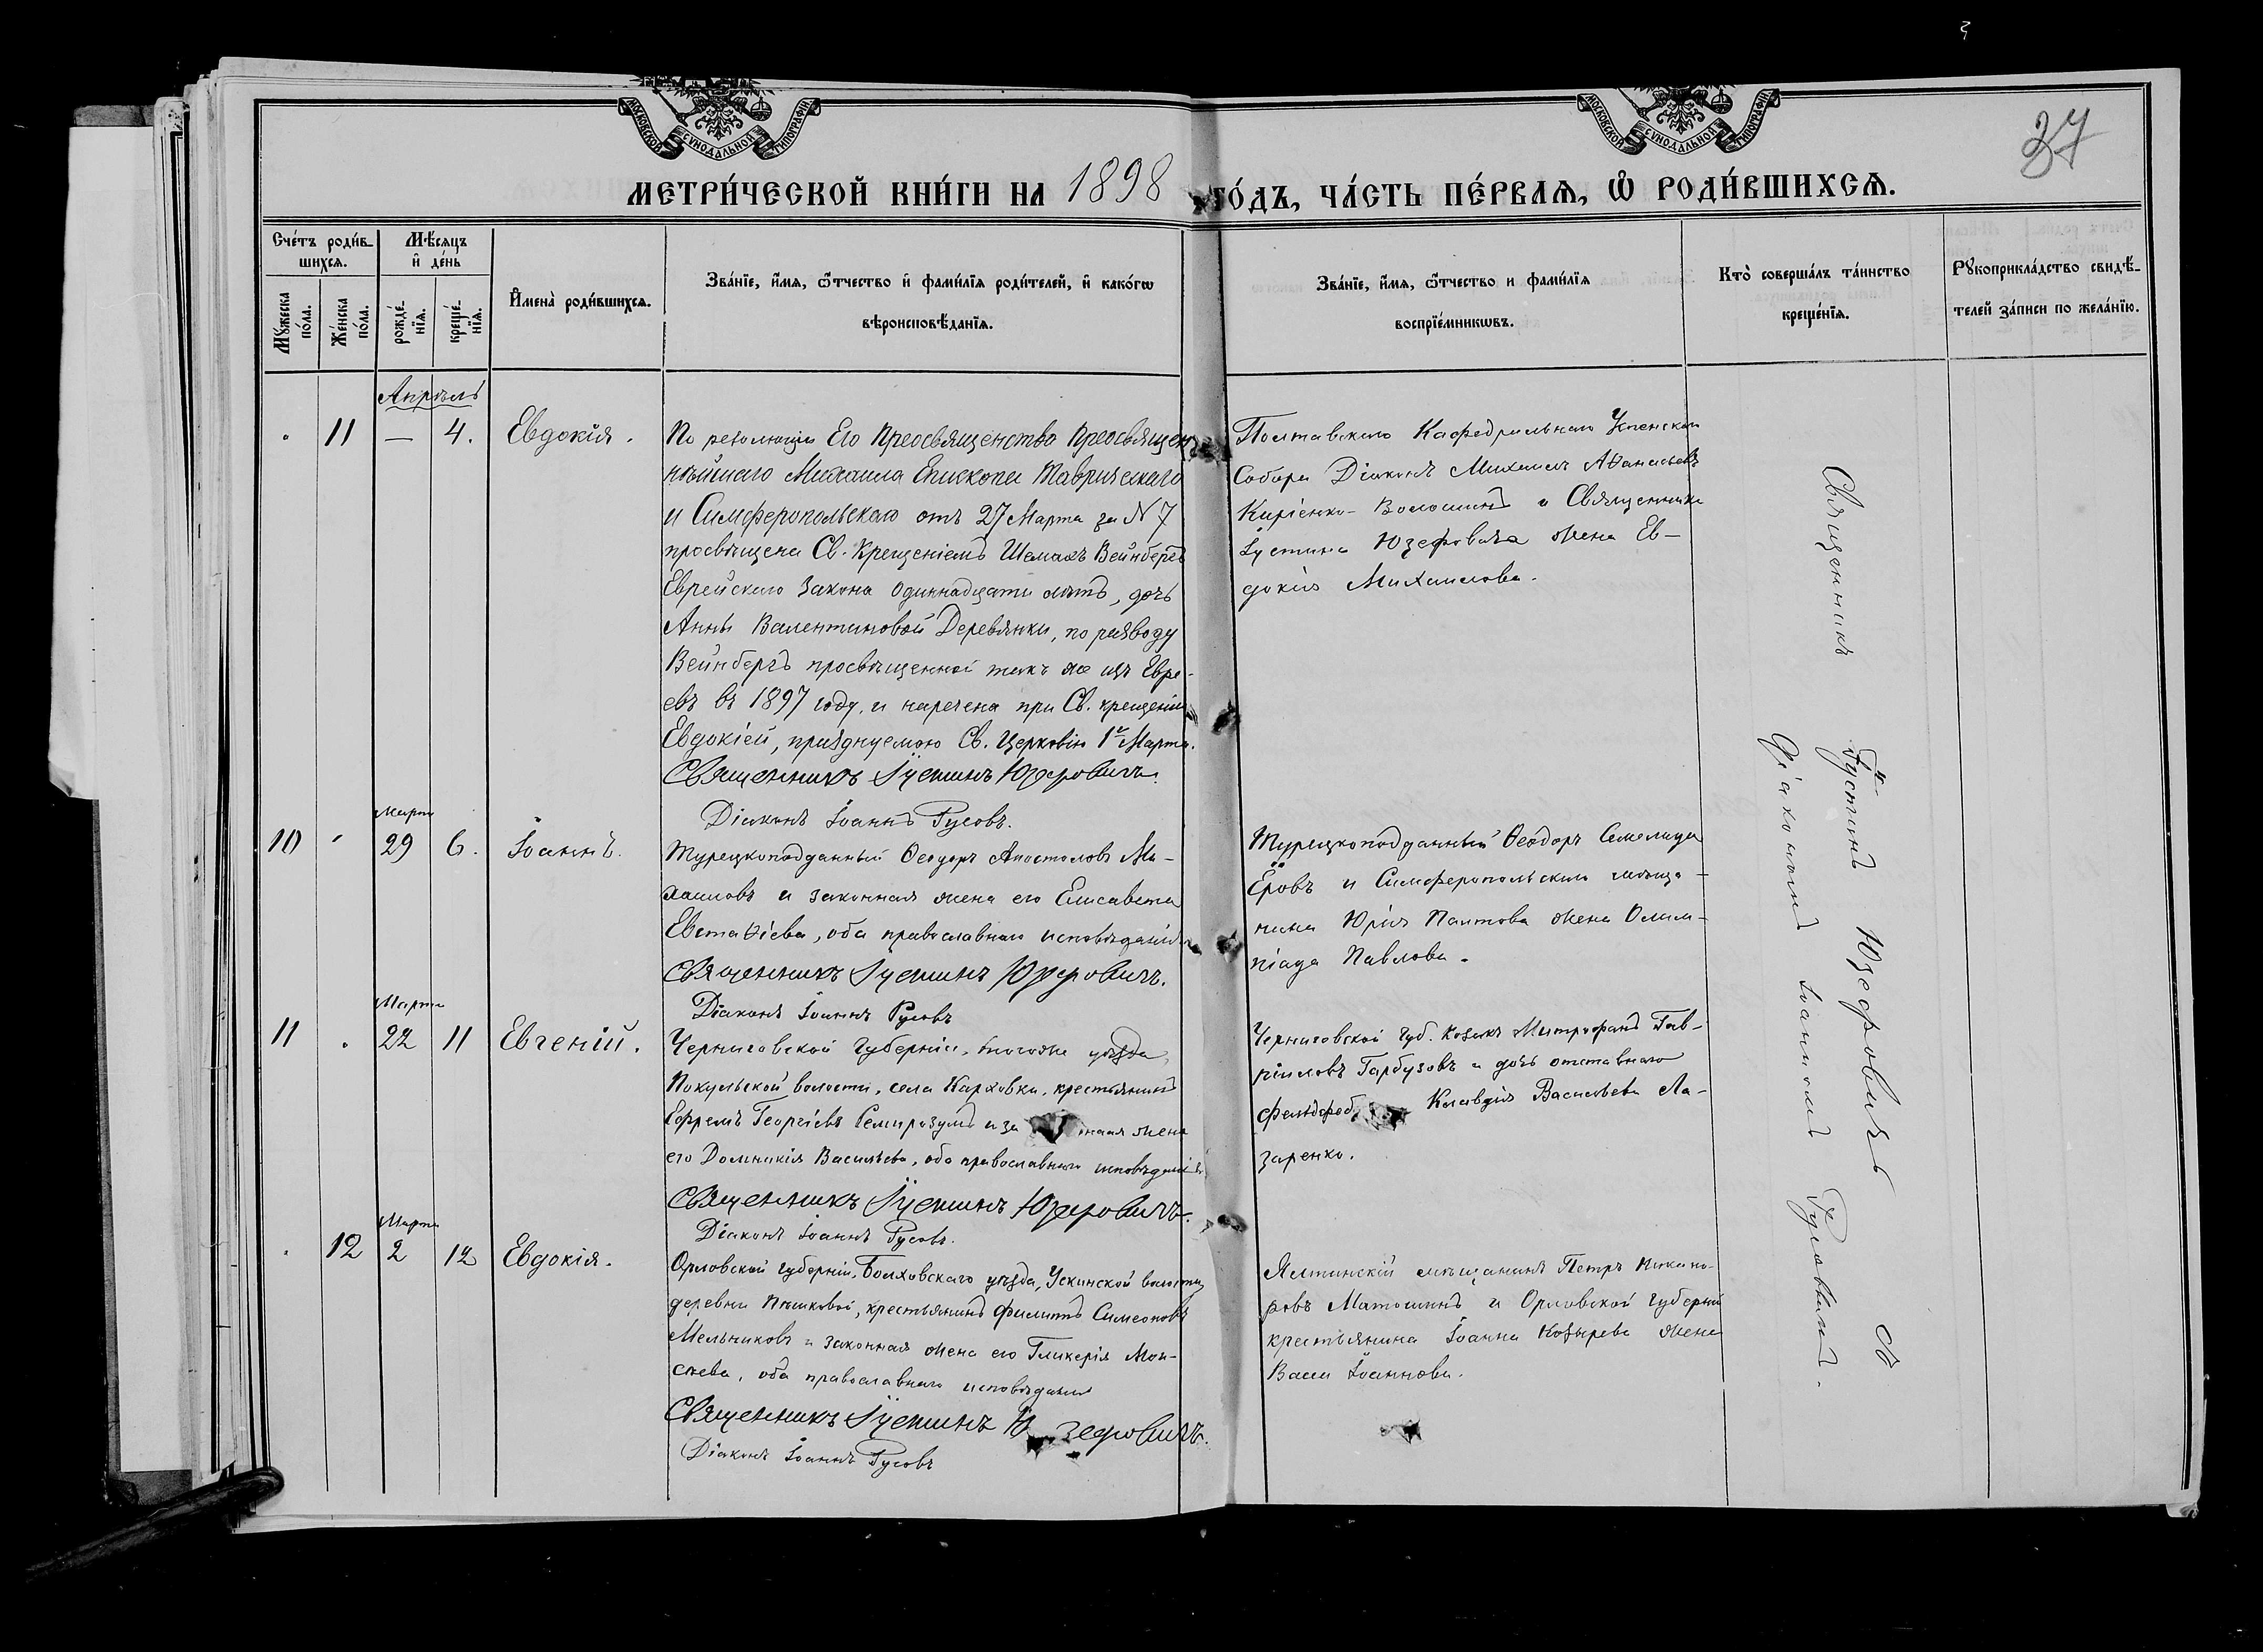 МОСКОВСКОЙ СѴНОДАЛЬНОЙ ТИПОГРАФІИ
МОСКОВСКОЙ СѴНОДАЛЬНОЙ ТИПОГРАФІИ
37
МЕТРИ́ЧЕСКОЙ КНИ́ГИ НА 1898 ГО́ДЪ, ЧА́СТЬ ПЕ́РВАѦ, Ѡ РОДИ́ВШИХСѦ.
Сче́тъ роди́в-
шихсѧ.
Мѣ́сѧцъ
и де́нь
Мꙋ́жеска
по́ла.
Же́нска
по́ла.
рожде́-
нїѧ.
креще́-
нїѧ.
Имена̀ роди́вшихсѧ.
Зва́нїе, и́мѧ, ѻ҆́тчество и фами́лїѧ роди́телей, и како́гѡ
вѣроисповѣ́данїѧ.
Зва́нїе, и́мѧ, ѻ҆́тчество и фами́лїѧ
воспрїе́мникѡвъ.
Кто̀ соверша́лъ та́инство
креще́нїѧ.
Рꙋкоприкла́дство свидѣ́-
телей за́писи по жела́нїю.
Апрѣль
11 — 4. Евдокія.
По резолюціи Его Преосвященства Преосвящен
нѣйшаго Михаила Епископа Таврическаго
и Симферопольскаго отъ 27 Марта за № 7
просвѣщена Св. Крещеніемъ Шемахъ Вейнбергъ
Еврейскаго закона одиннадцати лѣтъ, дочь
Анны Валентиновой Деревянки, по разводу
Вейнбергъ просвѣщенной такъ же изъ Евре-
евъ въ 1897 году, и наречена при Св. крещеніи
Евдокіей, празднуемою Св. Церковію 1го Марта.
Священникъ Іустинъ Юзефовичъ.
Діаконъ Іоаннъ Русовъ.
Полтавскаго Кафедральнаго Успенскаго
Собора Діаконъ Михаилъ Аѳанасьевъ
Киріенко-Волошинъ и Священника
Іустина Юзефовича жена Ев-
докія Михаилова.
Марта
10 29 6. Іоаннъ.
Турецкоподданный Ѳеодоръ Апостоловъ Ми-
хаиловъ и законная жена его Елисавета
Евстаѳіева, оба православнаго исповѣданія
Священникъ Іустинъ Юзефовичъ.
Діаконъ Іоаннъ Русовъ
Турецкоподданный Ѳеодоръ
Ёровъ и Симферопольскаго мѣща-
нина Юрія Палтова жена Олим-
піада Павлова.
Марта
11 22 11 Евгеній.
Черниговской Губерніи, того же уѣзда,
волости, села Карховки, крестьянинъ
Ефремъ Георгіевъ Семиразумъ и за ная жена
его Домникія Васильева, оба православнаго исповѣданія
Священникъ Іустинъ Юзефовичъ.
Діаконъ Іоаннъ Русовъ.
Черниговской Губ. Козакъ Митрофанъ Гав-
ріиловъ Гарбузовъ и дочь отставнаго
Клавдія Васильева Ла-
заренко.
Марта
12 2 12 Евдокія.
Орловской губерніи, Болховскаго уѣзда, волости,
деревни крестьянинъ Филиппъ Симеоновъ
Мельниковъ и законная жена его Гликерія Мои-
сеева, оба православнаго исповѣданія
Священникъ Іустинъ Ю зефовичъ.
Діаконъ Іоаннъ Русовъ
Ялтинскій мѣщанинъ Петръ Никано-
ровъ Матошинъ и Орловской губерніи
крестьянина Іоанна Козырева жена
Васса Іоаннова.
Священникъ Іустинъ Юзефовичъ съ
Діакономъ Іоанномъ Русовымъ.